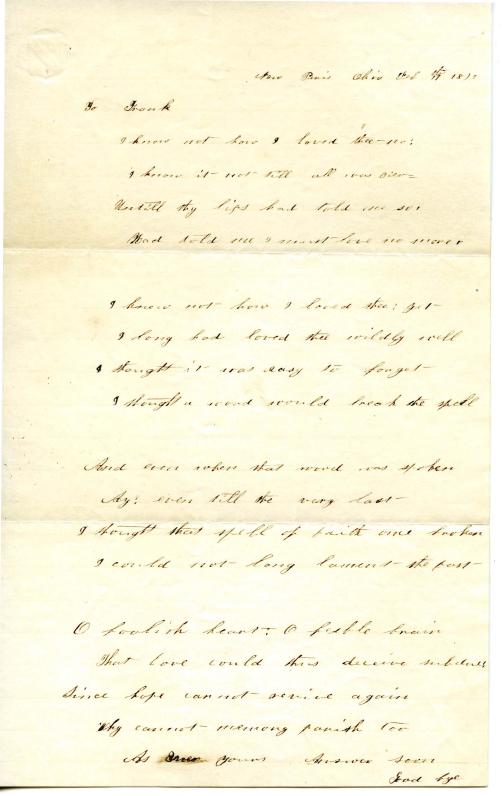 New Paris Ohio Feb
To Frank
I know not how I loved thee - no!
I knew it not till all was oer -
Untill thy lips had told me so!
Had told me I must love no more
I knew not how I loved thee! yet
I long had loved thee wildly well
I thought it was easy to forget
I thought a word would break the spell
And even when that word was spoken
Ay! even till the very last
I thought that spell of faith one broken
I could not long lament the past
O foolish heart! O feeble brain
That love could thus decive
Since hope cannot revive again
Why cannot memory parish too
As Ever yours Answer soon
Good bye